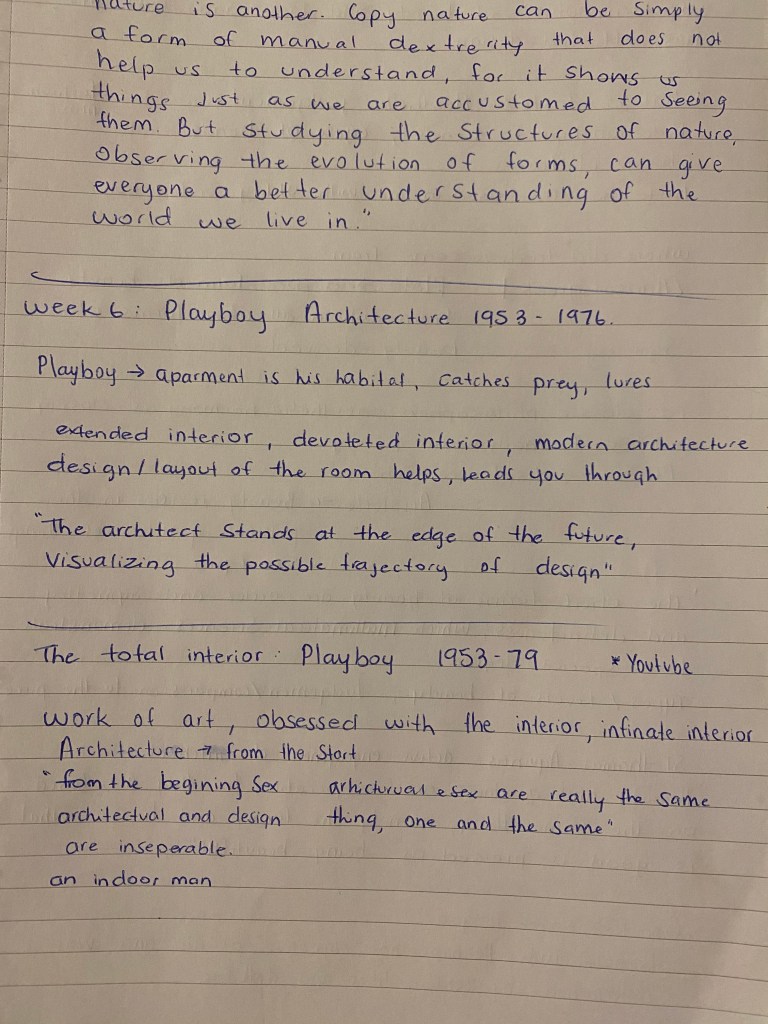 nature is another. Copy nature can be Simply
a form of manual dextrerity that does not
help us to understand, for it shows us
things Just as we are accustomed to Seeing
them. But Studying the Structures of nature,
Observing the evolution of forms, can give
everyone a better understanding of the
world we live in."
Week 6: Playboy Architecture 1953 - 1976.
Playboy → aparment is his habitat, catches prey, lures
extended interior, devoteted interior, modern architecture
design/layout of the room helps, leads you through
"The architect Stands at the edge of the future,
Visualizing the possible trajectory of design"
The total interior: Playboy 1953-79 * Youtube
work of art, obsessed with the interior, infinate interior
Architecture → from the Start
"from the begining Sex arhicturual & sex are really the same
architectual and design thing, one and the same"
are inseperable.
an indoor man